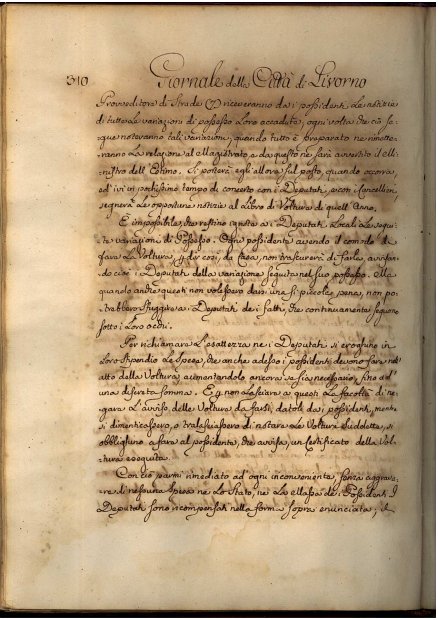 310 Giornale della Città di Livorno
Provveditore di Strade riceveranno dai possidenti le notizie
di tutte le variazioni di possesso loro accadute, ogni volta che ciò se-
gue noteranno tali variazioni, quando tutto è preparato ne rimette-
ranno la relazione al Magistrato e da questo ne sarà avvertito il Mi-
nistro dell'Estimo. Si porterà egli allora sul posto, quando occorra,
ed ivi in pochissimo tempo di concerto con i Deputati, e con i Cancellieri,
segnerà le opportune notizie al Libro di Volture di quell'Anno.
È impossibile, che restino ignote a i Deputati Locali le segui-
te variazioni di Possesso. Ogni possidente avendo il comodo di
fare la Voltura dir così, da Casa, non trascurerà di farla, avvisan-
do così i Deputati della variazione seguita nel suo possesso. Ma
quando anche questi non volessero darsi una sì piccola pena, non po-
trebbero sfuggire a Deputati de i fatti, che continuamente seguono
sotto i Loro occhi.
Per richiamare l'esattezza ne i Deputati si eroghino in
Loro Stipendio le Spese, che anche adesso i possidenti devono fare nell'
atto della Voltura aumentandolo ancora se sia necessario, fino ad
una discreta somma. E non lasciare a questi la facoltà di ne-
gare l'avviso delle Volture da farsi, datoli da i possidenti, mentre
si dimenticassero, o tralasciassero di notare la Voltura suddetta, si
obblighino a fare al possidente, che avvisa, un Certificato della Vol-
tura eseguita.
Con ciò parmi rimediato ad ogni inconveniente, senza aggrava-
re di nessuna spesa ne lo Stato, ne la Massa de i Possidenti. I
Deputati sono ricompensati nella forma sopra enunciata; il